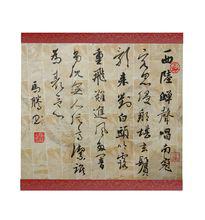 西陸蟬聲唱南冠
客思侵那堪玄鬢
影來對白頭吟露
重飛難進風多響
易沉無人信高潔誰
為表予心
馬騰